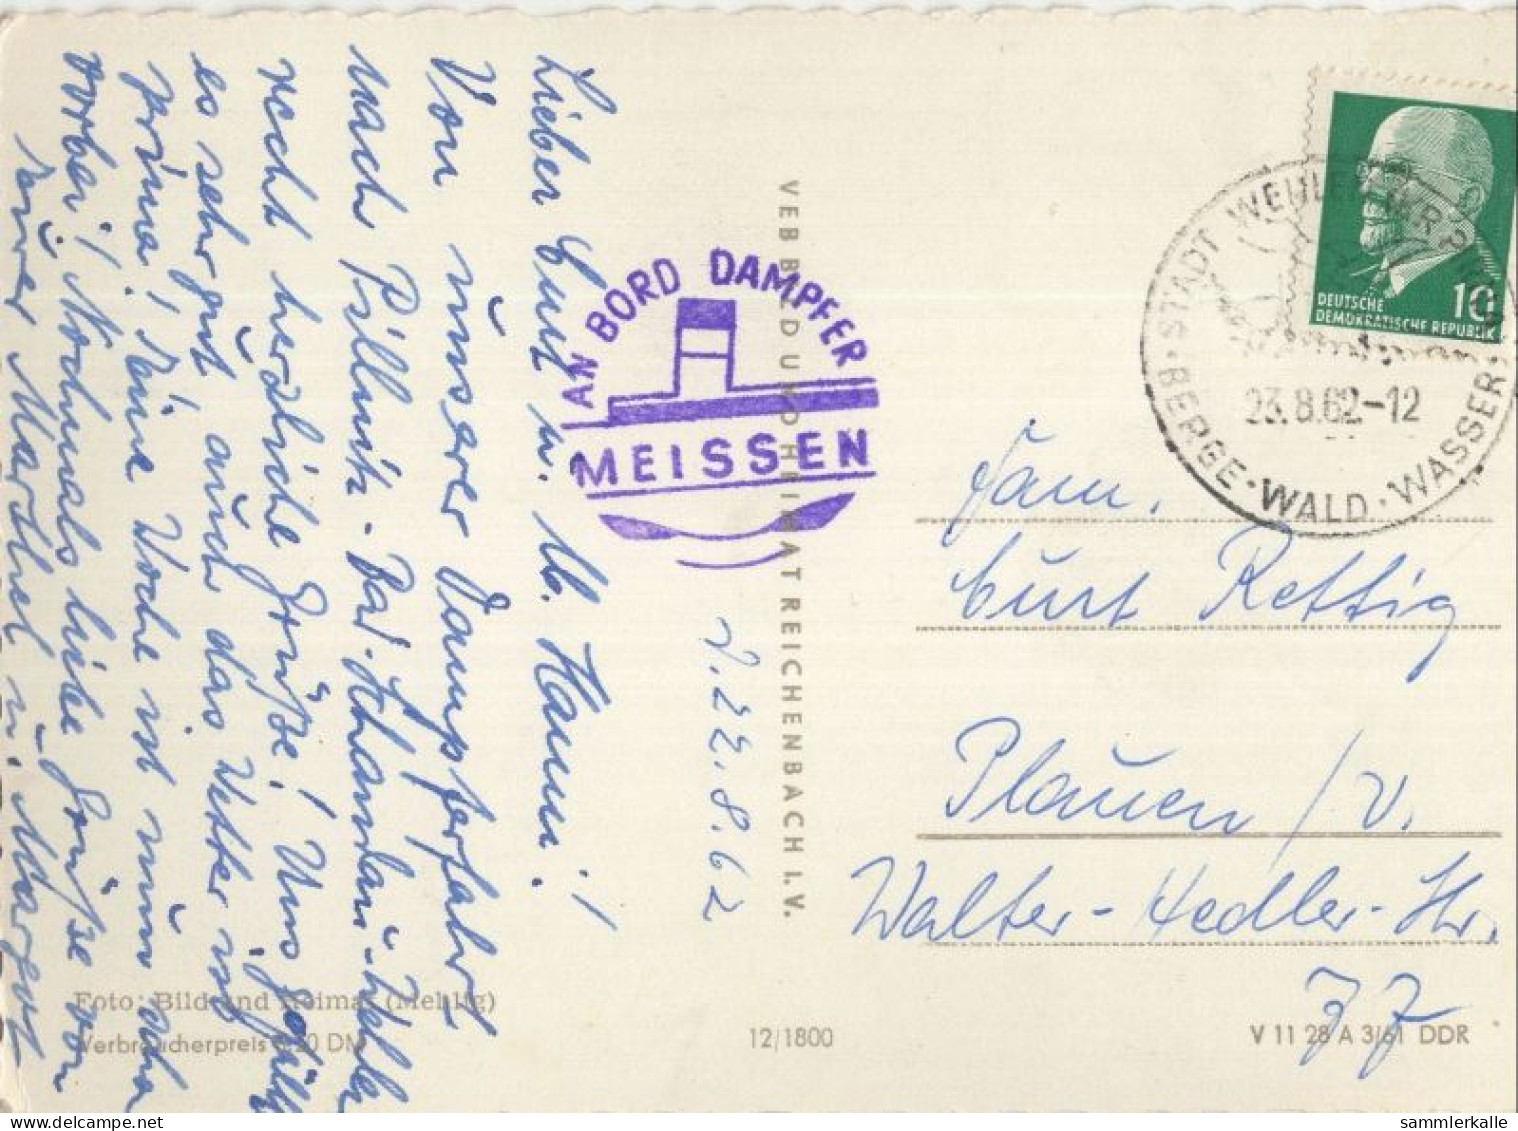 Lieber Curt u. lb. Hanni!
Von unserer Dampferfahrt
nach Pillnitz - Bad-Schandau-Wehlen
recht herzliche Grüße! Uns gefällt
es sehr gut auch das Wetter ist
prima! Eine Woche ist nun schon
vorbei! Nochmals liebe Grüße von
Eurer Marthel u. Margot
d. 22.8.62
AN BORD DAMPFER
MEISSEN
VEB BILD UND HEIMAT REICHENBACH I. V.
DEUTSCHE
DEMOKRATISCHE REPUBLIK
10
STADT WEHLEN
23.8.62-12
BERGE · WALD · WASSER
Fam.
Curt Rettig
Plauen / V.
Walter-Hedler-Str.
77
Foto: Bild und Heimat (Mehlig)
Verbraucherpreis 0,20 DM
12/1800
V 11 28 A 3/61 DDR
sammlerkalle
delcampe.net